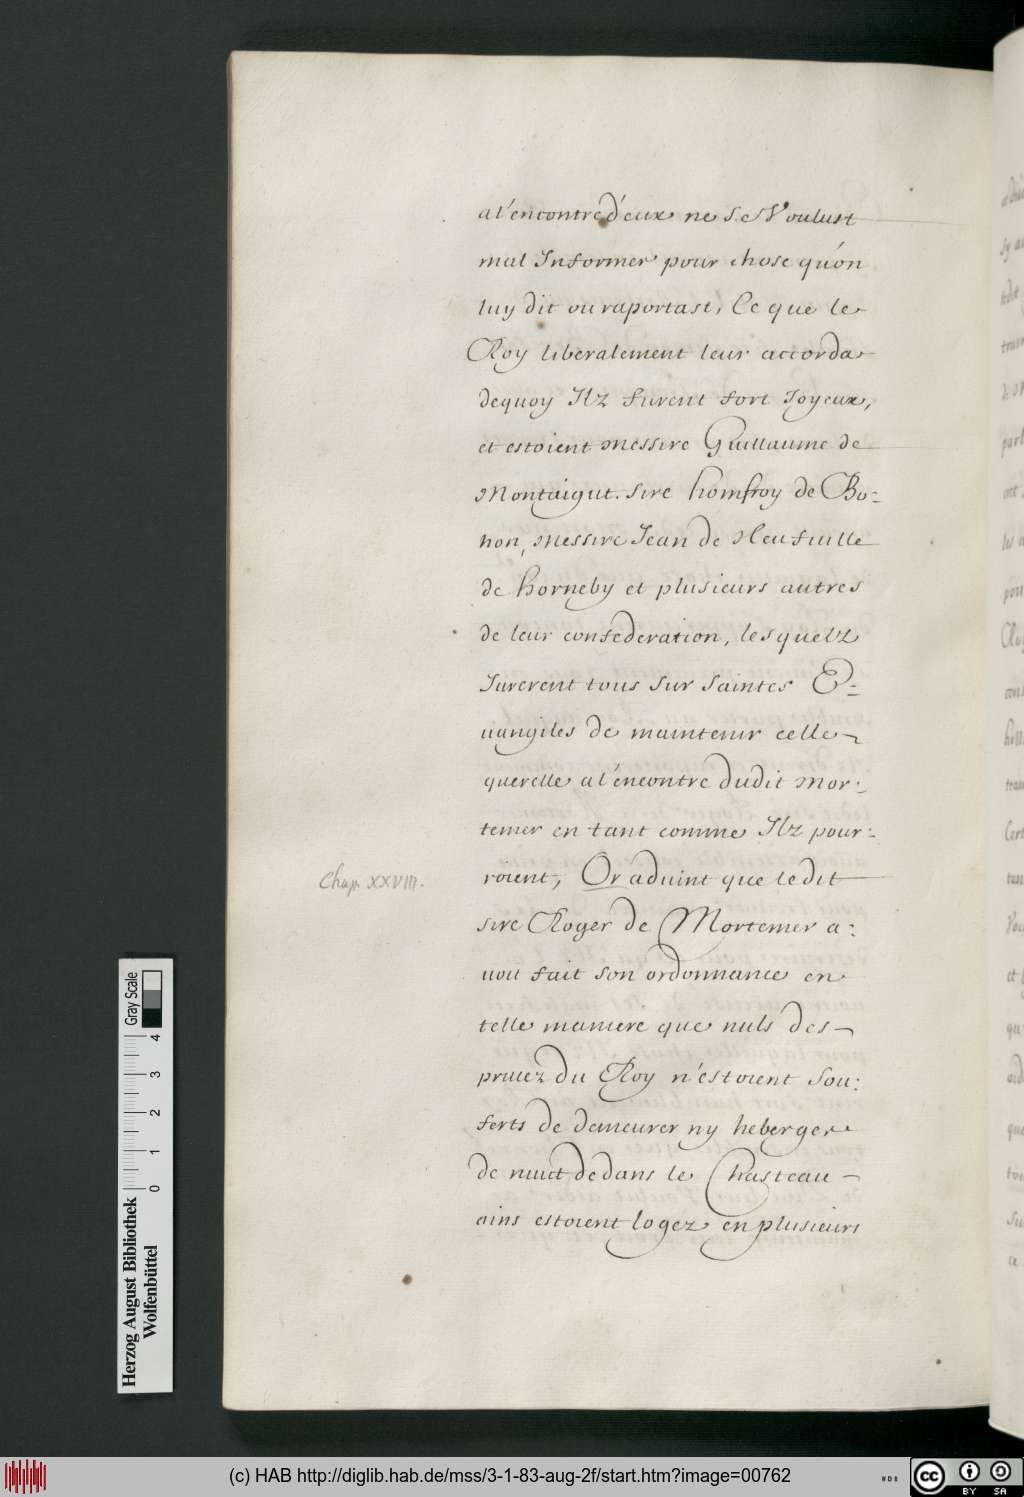 a l'encontre d'eux ne se Voulust
mal Informer pour chose qu'on
luy dit ou raportast, Ce que le
Roy liberalement leur accorda
dequoy Ilz furent fort Joyeux,
et estoient Messire Guillaume de
Montaigut. sire homfroy de Bo-
hon, Messire Jean de Neufuille
de horneby et plusieurs autres
de leur confederation, lesquelz
Jurerent tous sur saintes E-
uangiles de maintenir celle
querelle a l'encontre dudit Mor-
temer en tant comme Ilz pour-
roient, Or aduint que ledit
Chap. XXVIII.
sire Roger de Mortemer a-
uoit fait son ordonnance en
telle maniere que nuls des
priuez du Roy n'estoient Sou-
ferts de demeurer ny heberger
de nuict dedans le Chasteau
ains estoient logez en plusieurs
Herzog August Bibliothek
Wolfenbüttel
0 1 2 3 4
Gray Scale
(c) HAB http://diglib.hab.de/mss/3-1-83-aug-2f/start.htm?image=00762
WDB
cc BY SA